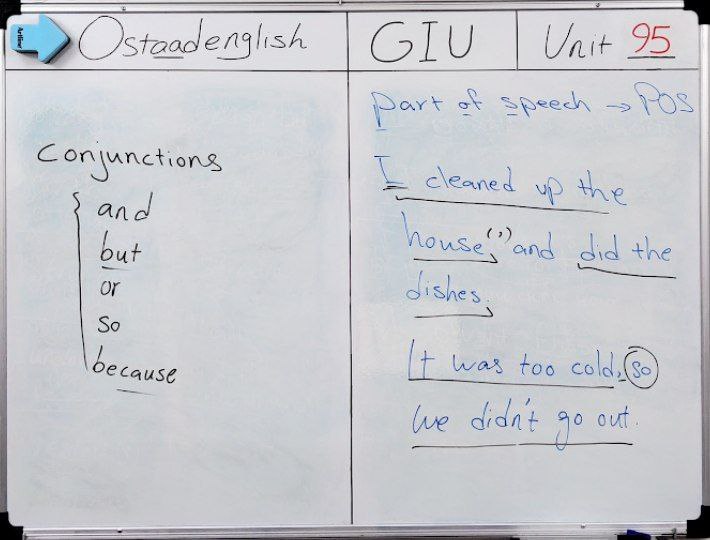 Artline
Ostaadenglish
GIU
Unit 95
Conjunctions
and
but
or
so
because
part of speech → POS
I cleaned up the
house, (,) and did the
dishes.
It was too cold, so
we didn't go out.